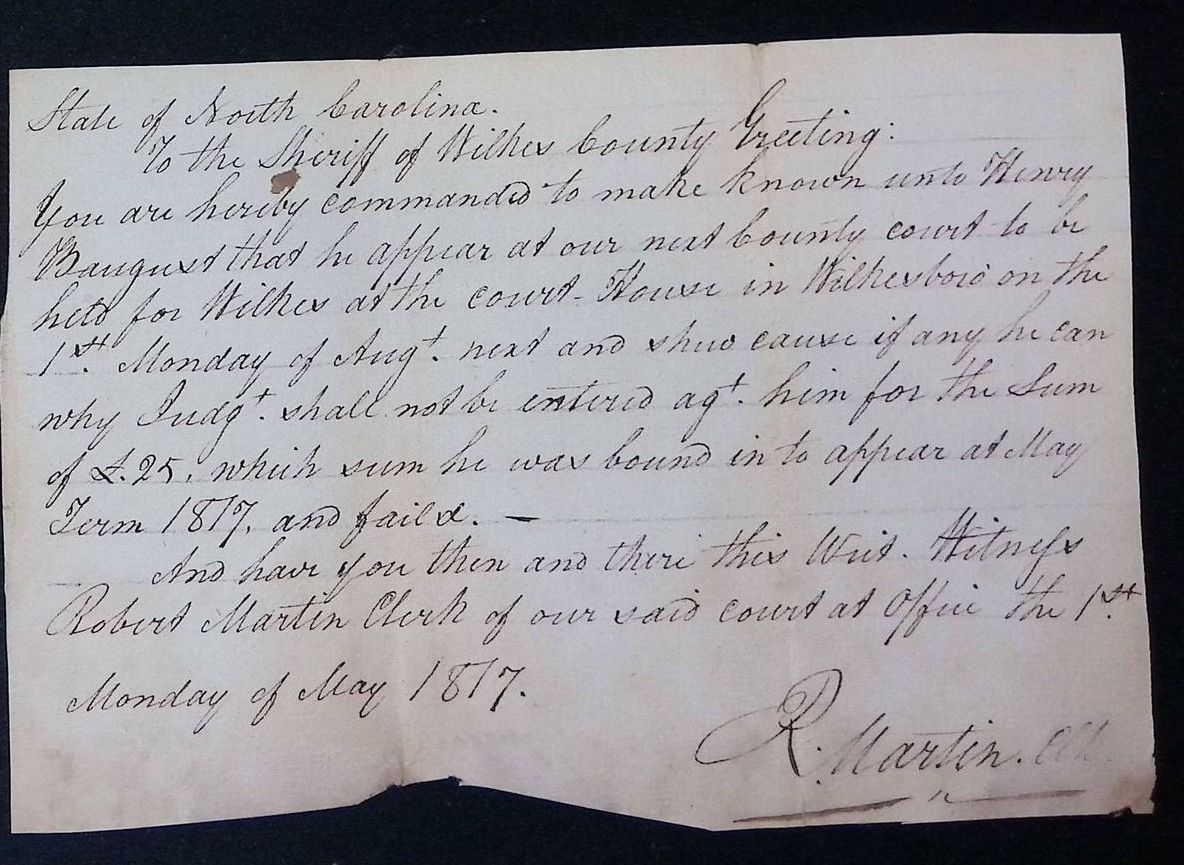 State of North Carolina.
To the Sheriff of Wilkes County Greeting:
You are hereby commanded to make known unto Henry
Baugust that he appear at our next County court to be
held for Wilkes at the court-House in Wilkesboro on the
1st. Monday of Augt. next and shew cause if any he can
why Judgt. shall not be entered agt. him for the Sum
of £.25. which sum he was bound in to appear at May
Term 1817. and faild. —
And have you then and there this Writ. Witness
Robert Martin Clerk of our said court at Office the 1st.
Monday of May 1817.
R. Martin.